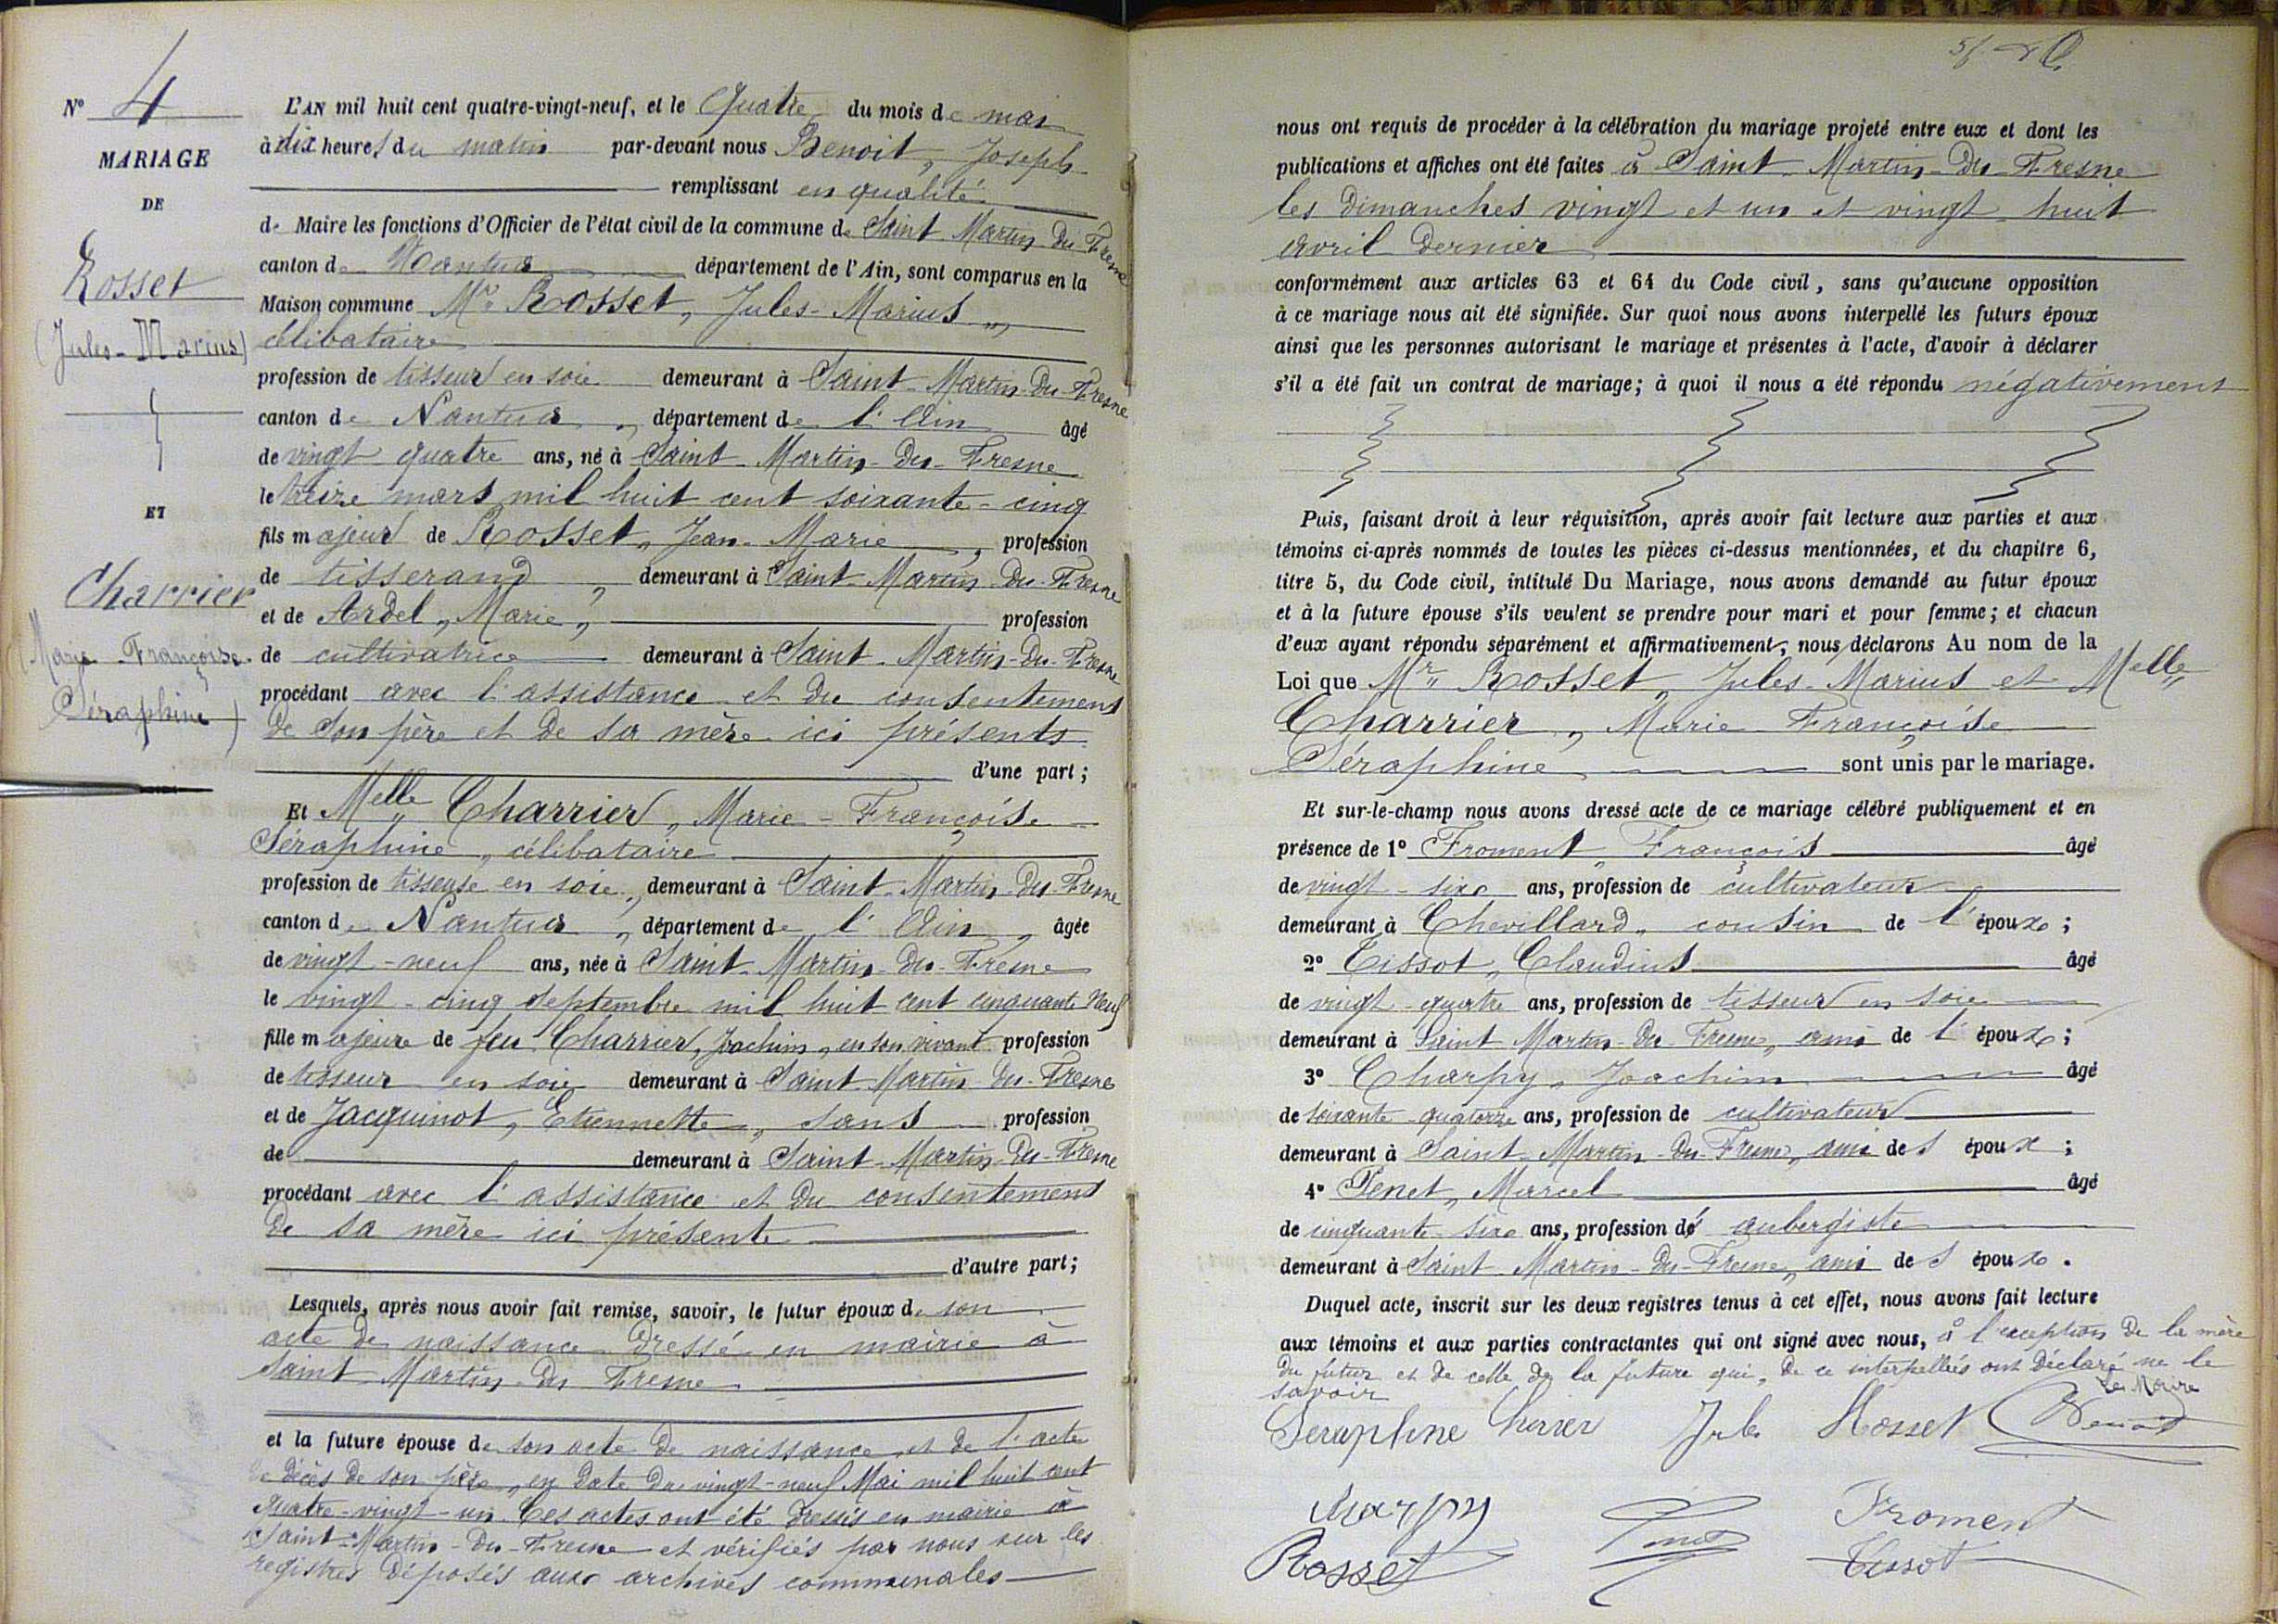 N° 4
MARIAGE
DE
Rosset
(Jules-Marius)
ET
Charrier
(Marie Françoise
Séraphine)
L'AN mil huit cent quatre-vingt-neuf, et le Quatre du mois de mai
à dix heures du matin par-devant nous Benoit, Joseph
remplissant en qualité
de Maire les fonctions d'Officier de l'état civil de la commune de Saint Martin du Fresne
canton de Nantua département de l'Ain, sont comparus en la
Maison commune Mr Rosset, Jules-Marius,
célibataire
profession de tisseur en soie demeurant à Saint-Martin-du-Fresne
canton de Nantua, département de l'Ain âgé
de vingt quatre ans, né à Saint-Martin-du-Fresne
le treize mars mil huit cent soixante-cinq
fils majeur de Rosset, Jean-Marie, profession
de tisserand, demeurant à Saint Martin-du-Fresne
et de Ardel, Marie, profession
de cultivatrice demeurant à Saint-Martin-du-Fresne
procédant avec l'assistance et du consentement
de son père et de sa mère ici présents
d'une part ;
Et Melle Charrier, Marie-Françoise
Séraphine, célibataire
profession de tisseuse en soie, demeurant à Saint-Martin-du-Fresne
canton de Nantua, département de l'Ain, âgée
de vingt-neuf ans, née à Saint-Martin-du-Fresne
le vingt-cinq septembre mil huit cent cinquante neuf
fille majeure de feu Charrier, Joachim, en son vivant profession
de tisseur en soie demeurant à Saint-Martin-du-Fresne
et de Jacquinot, Etiennette, sans profession
de demeurant à Saint-Martin-du-Fresne
procédant avec l'assistance et du consentement
de sa mère ici présente
d'autre part ;
Lesquels, après nous avoir fait remise, savoir, le futur époux de son
acte de naissance dressé en mairie à
Saint-Martin-du Fresne
et la future épouse de son acte de naissance et de l'acte
de décès de son père, en date du vingt-neuf Mai mil huit cent
quatre-vingt-un. Ces actes ont été dressés en mairie à
Saint-Martin-du-Fresne et vérifiés par nous sur les
registres déposés aux archives communales
nous ont requis de procéder à la célébration du mariage projeté entre eux et dont les
publications et affiches ont été faites à Saint-Martin-du-Fresne
les dimanches vingt et un et vingt-huit
avril dernier
conformément aux articles 63 et 64 du Code civil, sans qu'aucune opposition
à ce mariage nous ait été signifiée. Sur quoi nous avons interpellé les futurs époux
ainsi que les personnes autorisant le mariage et présentes à l'acte, d'avoir à déclarer
s'il a été fait un contrat de mariage ; à quoi il nous a été répondu négativement
Puis, faisant droit à leur réquisition, après avoir fait lecture aux parties et aux
témoins ci-après nommés de toutes les pièces ci-dessus mentionnées, et du chapitre 6,
titre 5, du Code civil, intitulé Du Mariage, nous avons demandé au futur époux
et à la future épouse s'ils veulent se prendre pour mari et pour femme ; et chacun
d'eux ayant répondu séparément et affirmativement, nous déclarons Au nom de la
Loi que Mr Rosset, Jules-Marius et Melle
Charrier, Marie Françoise
Séraphine sont unis par le mariage.
Et sur-le-champ nous avons dressé acte de ce mariage célébré publiquement et en
présence de 1° Froment, François âgé
de vingt-six ans, profession de cultivateur
demeurant à Chevillard, cousin de l'époux ;
2° Tissot, Claudius âgé
de vingt-quatre ans, profession de tisseur en soie
demeurant à Saint Martin-du-Fresne, ami de l'époux ;
3° Charpy, Joachim âgé
de soixante-quatorze ans, profession de cultivateur
demeurant à Saint-Martin-du-Fresne, ami des époux ;
4° Tenet, Marcel âgé
de cinquante-six ans, profession d' aubergiste
demeurant à Saint-Martin-du-Fresne, ami des époux.
Duquel acte, inscrit sur les deux registres tenus à cet effet, nous avons fait lecture
aux témoins et aux parties contractantes qui ont signé avec nous, à l'exception de la mère
du futur et de celle de la future qui, de ce interpellées ont déclaré ne le
savoir
Le Maire
Seraphine Jules Rosset Benoit
Charpy Froment
Rosset Tissot